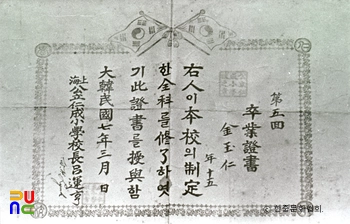 第五回
卒業證書
金玉仁
年十五
右人이本校의制定
한全科를修了하엿
기此證書를授與함
大韓民國七年三月 日
上海仁成小學校長呂運亨
한중문화협회